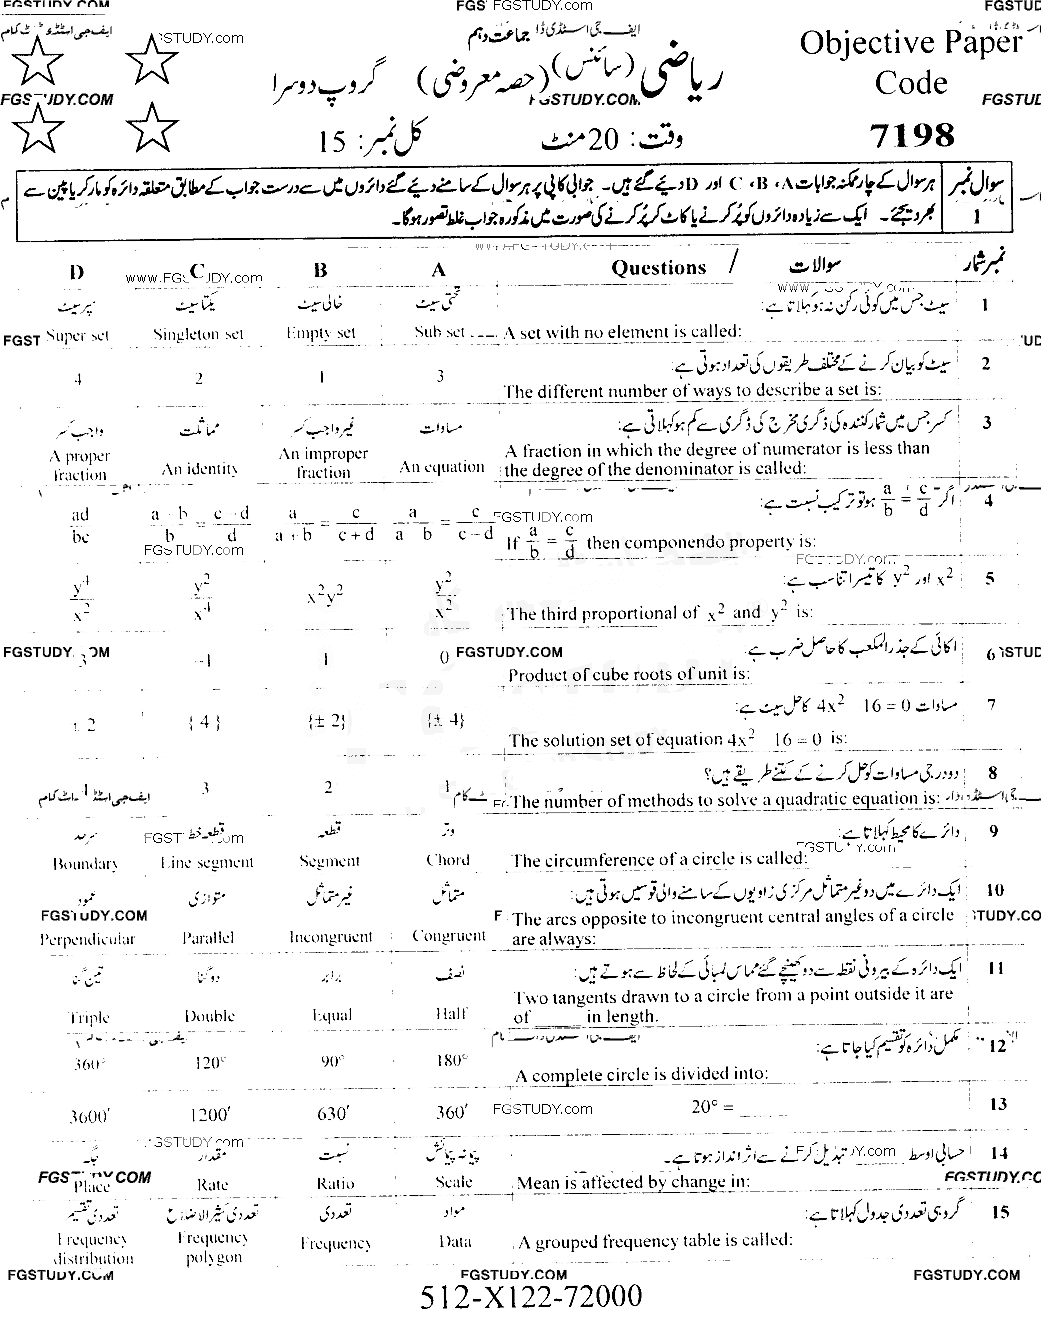 FGSTUDY.COM FGSTUDY.COM FGSTUD
FGSTUDY.com
ایف جی اسٹڈی ڈاٹ کام
جماعت دہم
ریاضی (سائنس) (حصہ معروضی) گروپ دوسرا
Objective Paper
Code
7198
FGSTUDY.COM FGSTUDY.COM FGSTUD
وقت: 20 منٹ کل نمبر: 15
سوال نمبر 1
ہر سوال کے چار ممکنہ جوابات A، B، C اور D دیئے گئے ہیں۔ جوابی کاپی پر ہر سوال کے سامنے دیئے گئے دائروں میں سے درست جواب کے مطابق متعلقہ دائرہ کو مارکر یا پین سے
بھر دیجئے۔ ایک سے زیادہ دائروں کو پُر کرنے یا کاٹ کر پُر کرنے کی صورت میں مذکورہ جواب غلط تصور ہوگا۔
D C B A Questions / سوالات نمبر شمار
www.FGSTUDY.com
سپر سیٹ یکتا سیٹ خالی سیٹ تحتی سیٹ سیٹ جس میں کوئی رکن نہ ہو کہلاتا ہے: 1
FGST Super set Singleton set Empty set Sub set A set with no element is called:
4 2 1 3 سیٹ کو بیان کرنے کے مختلف طریقوں کی تعداد ہوتی ہے: 2
The different number of ways to describe a set is:
واجب کسر مماثلت غیر واجب کسر مساوات کسر جس میں شمار کنندہ کی ڈگری مخرج کی ڈگری سے کم ہو کہلاتی ہے: 3
A proper fraction An identity An improper fraction An equation A fraction in which the degree of numerator is less than
the degree of the denominator is called:
اگر a/b = c/d ہو تو ترکیب نسبت ہے: 4
ad/bc a + b/b = c + d/d a/a + b = c/c + d a/a - b = c/c - d If a/b = c/d then componendo property is:
FGSTUDY.com FGSTUDY.com
FGSTUDY.com
x² اور y² کا تیسرا تناسب ہے: 5
y⁴/x² y²/x⁴ x²y² y²/x² The third proportional of x² and y² is:
FGSTUDY.COM FGSTUDY.COM
3 -1 1 0 اکائی کے جذر المکعب کا حاصل ضرب ہے: 6
Product of cube roots of unit is:
± 2 { 4 } {± 2} {± 4} مساوات 4x² 16 = 0 کا حل سیٹ ہے: 7
The solution set of equation 4x² 16 = 0 is:
4 3 2 1 دو درجی مساوات کو حل کرنے کے کتنے طریقے ہیں؟ 8
The number of methods to solve a quadratic equation is:
سرحد قطعہ خط قطعہ وتر دائرے کا محیط کہلاتا ہے: 9
FGSTUDY.com FGSTUDY.com
Boundary Line segment Segment Chord The circumference of a circle is called:
عمود متوازی غیر متماثل متماثل ایک دائرے میں دو غیر متماثل مرکزی زاویوں کے سامنے والی قوسیں ہوتی ہیں: 10
FGSTUDY.COM
Perpendicular Parallel Incongruent Congruent The arcs opposite to incongruent central angles of a circle
are always:
تین گنا دو گنا برابر نصف ایک دائرہ کے بیرونی نقطہ سے دو کھینچے گئے مماس لمبائی کے لحاظ سے ہوتے ہیں: 11
Triple Double Equal Half Two tangents drawn to a circle from a point outside it are
of _____ in length.
360° 120° 90° 180° مکمل دائرہ کو تقسیم کیا جاتا ہے: 12
A complete circle is divided into:
3600′ 1200′ 630′ 360′ FGSTUDY.com 20° = _____ 13
FGSTUDY.com
جگہ مقدار نسبت پیمانہ پیمائش حسابی اوسط تبدیل کرنے سے اثر انداز ہوتا ہے۔ 14
FGSTUDY.COM FGSTUDY.CO
Place Rate Ratio Scale Mean is affected by change in:
تعددی تقسیم تعددی کثیر الاضلاع تعددی مواد گروہی تعددی جدول کہلاتا ہے: 15
Frequency distribution Frequency polygon Frequency Data A grouped frequency table is called:
FGSTUDY.COM FGSTUDY.COM FGSTUDY.COM
512-X122-72000